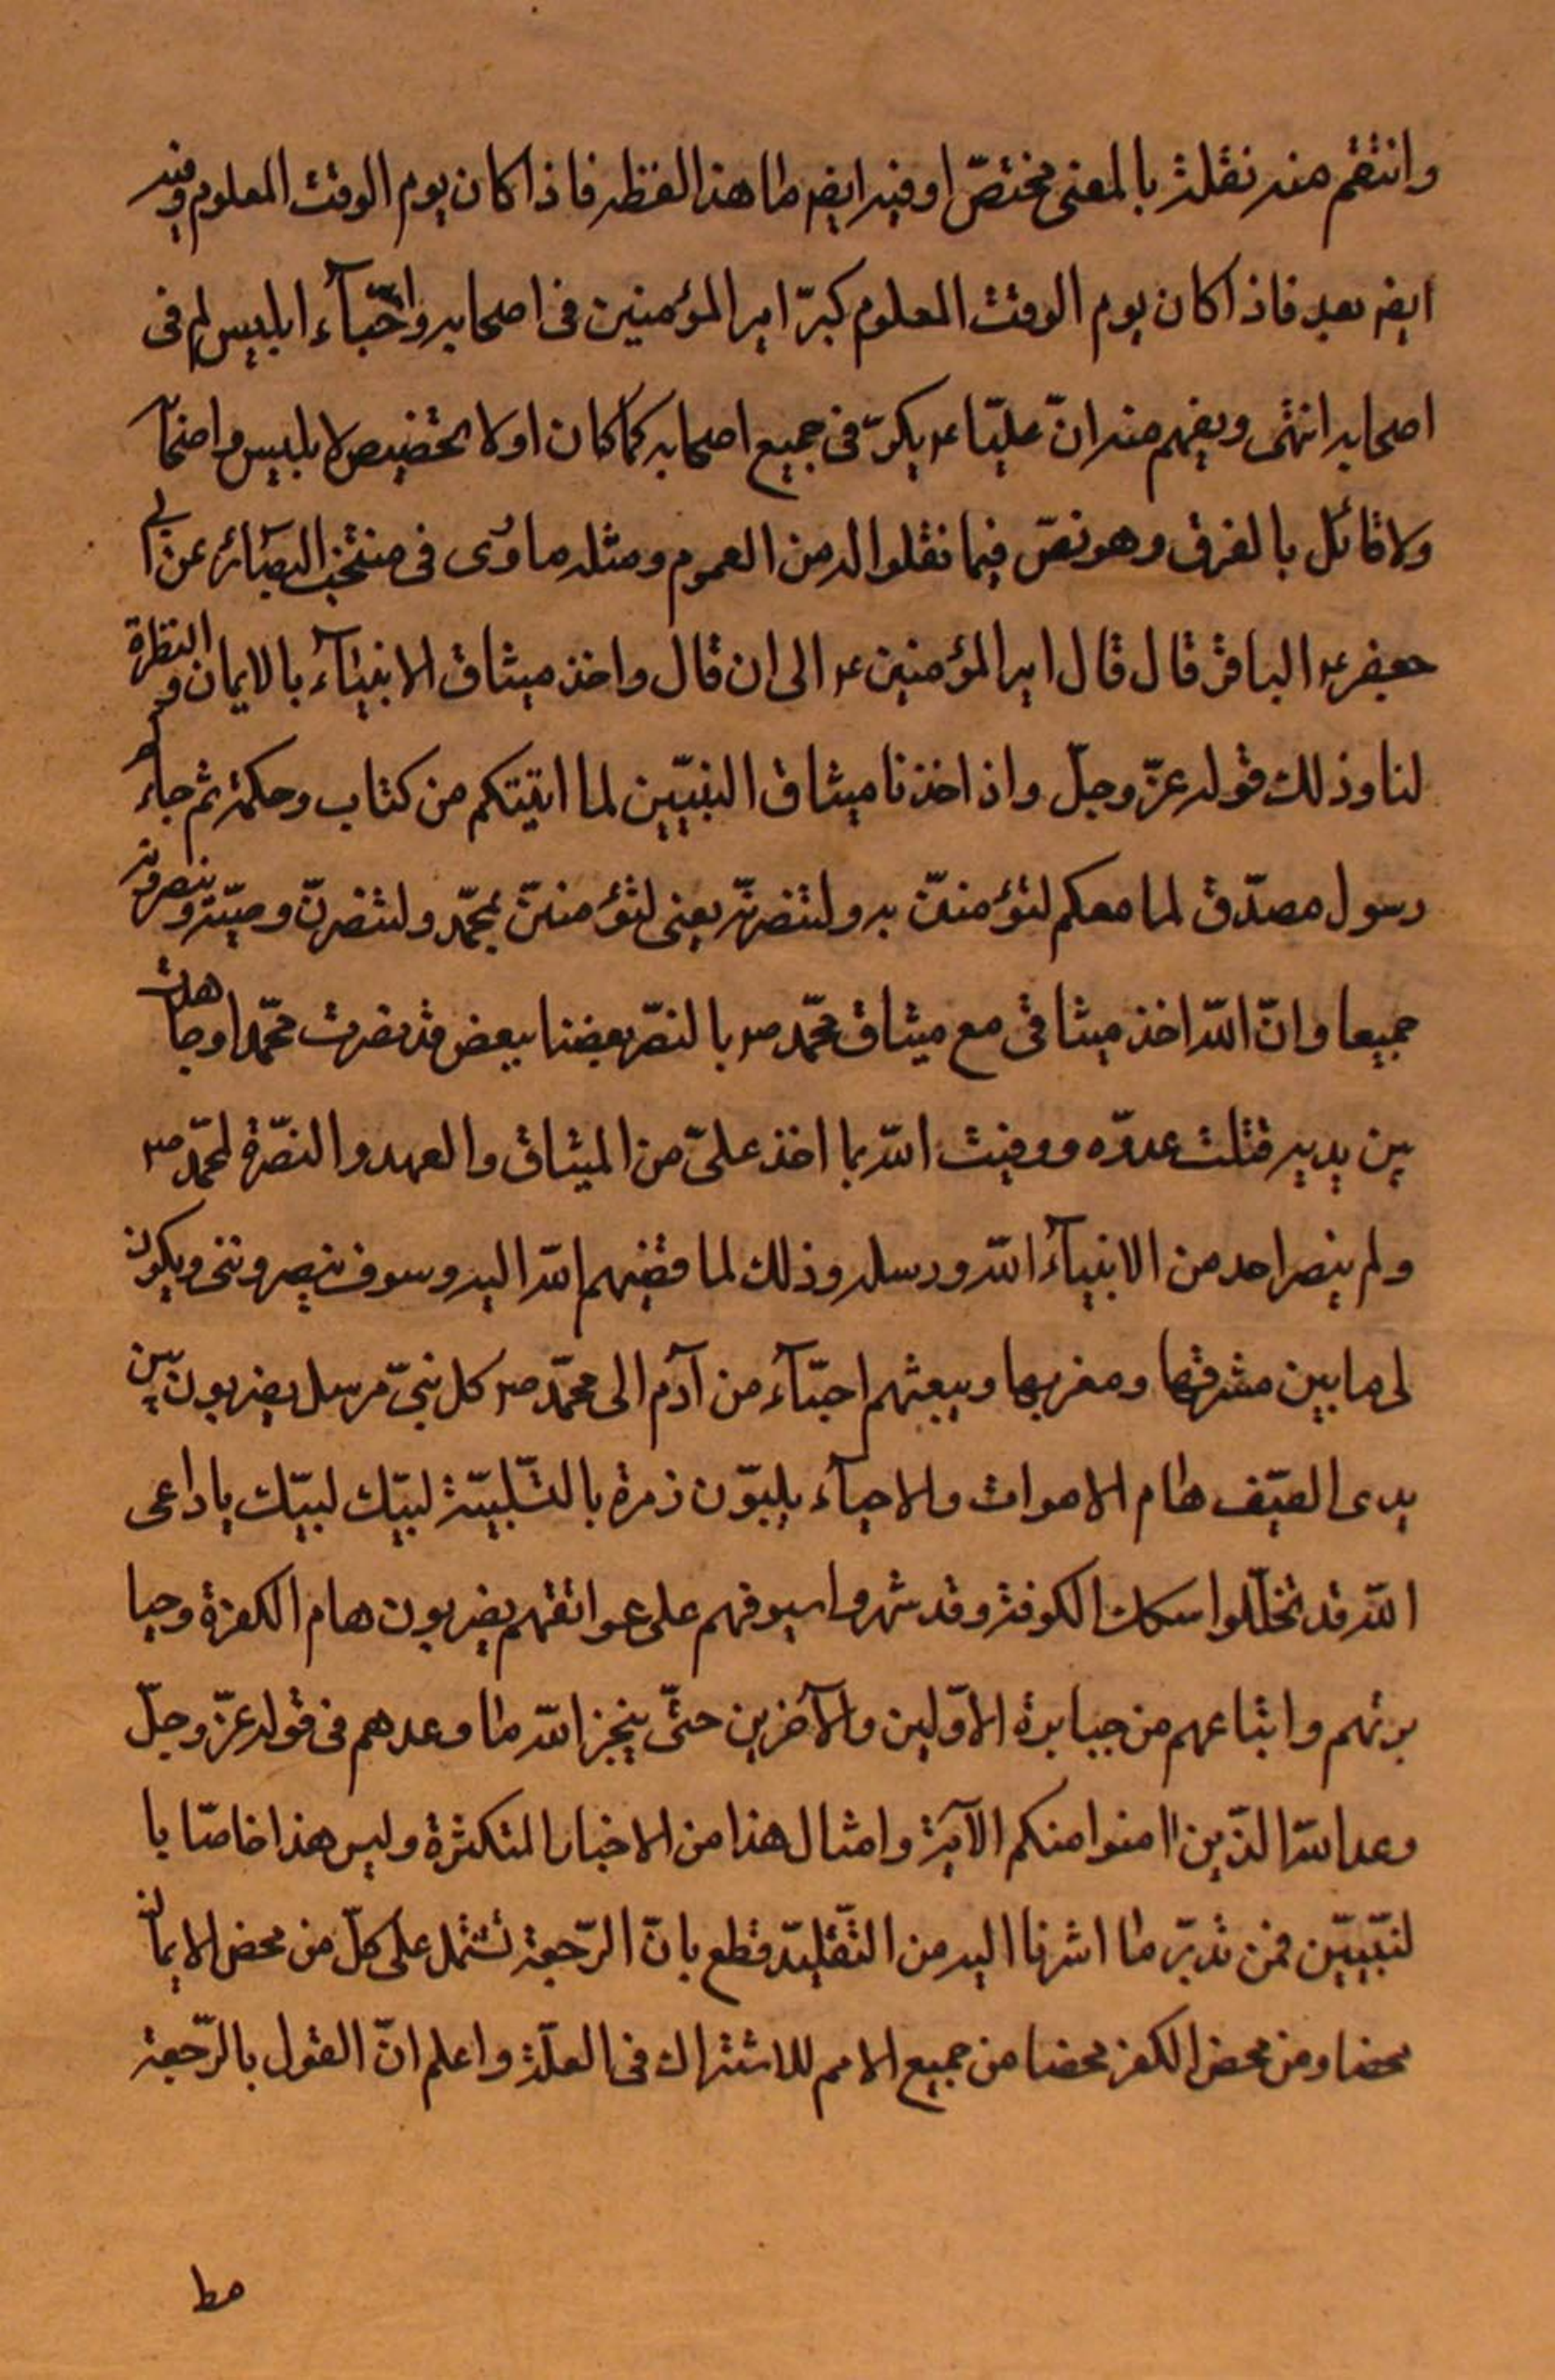 وانتقم منه نقلته بالمعنى مختصّا وفيه ايضا ما هذا لفظه فاذا كان يوم الوقت المعلوم وفيه
ايضا بعد فاذا كان يوم الوقت المعلوم كبرّ امير المؤمنين فى اصحابه واحّبآء ابليس لم فى
اصحابه انتهى ويفهم منه انّ عليّا ع يكرّ فى جميع اصحابه كما كان اولا تخصيص لابليس واصحآ
ولا قائل بالفرق وهو نصّ فيما نقلوا له من العموم ومثله ما روى فى منتخب البصآئر عن ابى
جعفر ع الباقر قال قال امير المؤمنين ع الى ان قال واخذ ميثاق الانبيآء بالايمان والنظرة
لنا وذلك قوله عزّ وجلّ واذ اخذنا ميثاق النبيّين لما اتيتكم من كتاب وحكمة ثم جاءكم
رسول مصدّق لما معكم لتؤمننّ به ولتنصرنّه يعنى لتؤمننّ بمحمّد ولتنصرنّ وصيّه وينصرونه
جميعا وانّ اللّه اخذ ميثاقى مع ميثاق محمّد ص بالنصّر بعضنا ببعض قد نصرت محمّدا وجاهدت
بين يديه قتلت عدوّه ووفيت اللّه بما اخذ علىّ من الميثاق والعهد والنصّرة لمحمّد ص
ولم ينصر احد من الانبيآء اللّه ورسله وذلك لما قضيهم اللّه اليه وسوف ينصروننى ويكون
لى ما بين مشرقها ومغربها ويبعثهم احيّآء من آدم الى محمّد ص كل نبىّ مرسل يضربون بين
يدى السّيف هام الاموات والاحيآء يلبوّن زمرة بالتّلبيّة لبيّك لبيّك يا داعى
اللّه قد تخلّلوا سكك الكوفة وقد شهروا سيوفهم على عواتقهم يضربون هام الكفرة وجبا
برتهم واتباعهم من جبابرة الاوّلين والآخرين حتّى ينجز اللّه ما وعدهم فى قوله عزّ وجلّ
وعد اللّه الذّين امنوا منكم الآية وامثال هذا من الاخبار المتكثرة وليس هذا خاصّا با
لنبّييّن فمن تدبرّ ما اشرنا اليه من التّقليّد قطع بانّ الرّجعة تشتمل على كلّ من محض الايمان
محضا ومن محض الكفر محضا من جميع الامم للاشتراك فى العلّة واعلم انّ القول بالرّجعة
مط